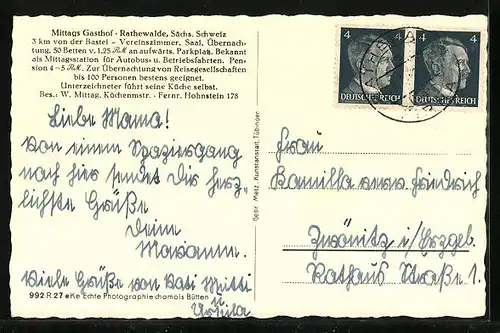 Mittags Gasthof · Rathewalde, Sächs. Schweiz
3 km von der Bastei – Vereinszimmer, Saal, Übernach-
tung, 50 Betten v. 1,25 RM an aufwärts. Parkplatz. Bekannt
als Mittagsstation für Autobus- u. Betriebsfahrten. Pen-
sion 4–5 RM. Zur Übernachtung von Reisegesellschaften
bis 100 Personen bestens geeignet.
Unterzeichneter führt seine Küche selbst.
Bes.: W. Mittag, Küchenmstr. · Fernr. Hohnstein 178
Liebe Mama!
Von einem Spaziergang
nach hier sendet Dir herz-
lichste Grüße
Deine
Marianne.
Viele Grüße von Kati Mutti
u Ursula
992 R 27 eKe Echte Photographie chamois Bütten
Gebr. Metz, Kunstanstalt, Tübingen
4 4
4 4
DEUTSCHES REICH DEUTSCHES REICH
Frau
Kamilla verw. Friedrich
Zwönitz i/Erzgeb.
Rathaus Straße 1.